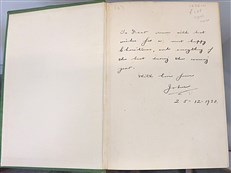 with best
wishes for a most happy
Christmas, and everything of
the best during the coming
year.
With love from
25-12-19